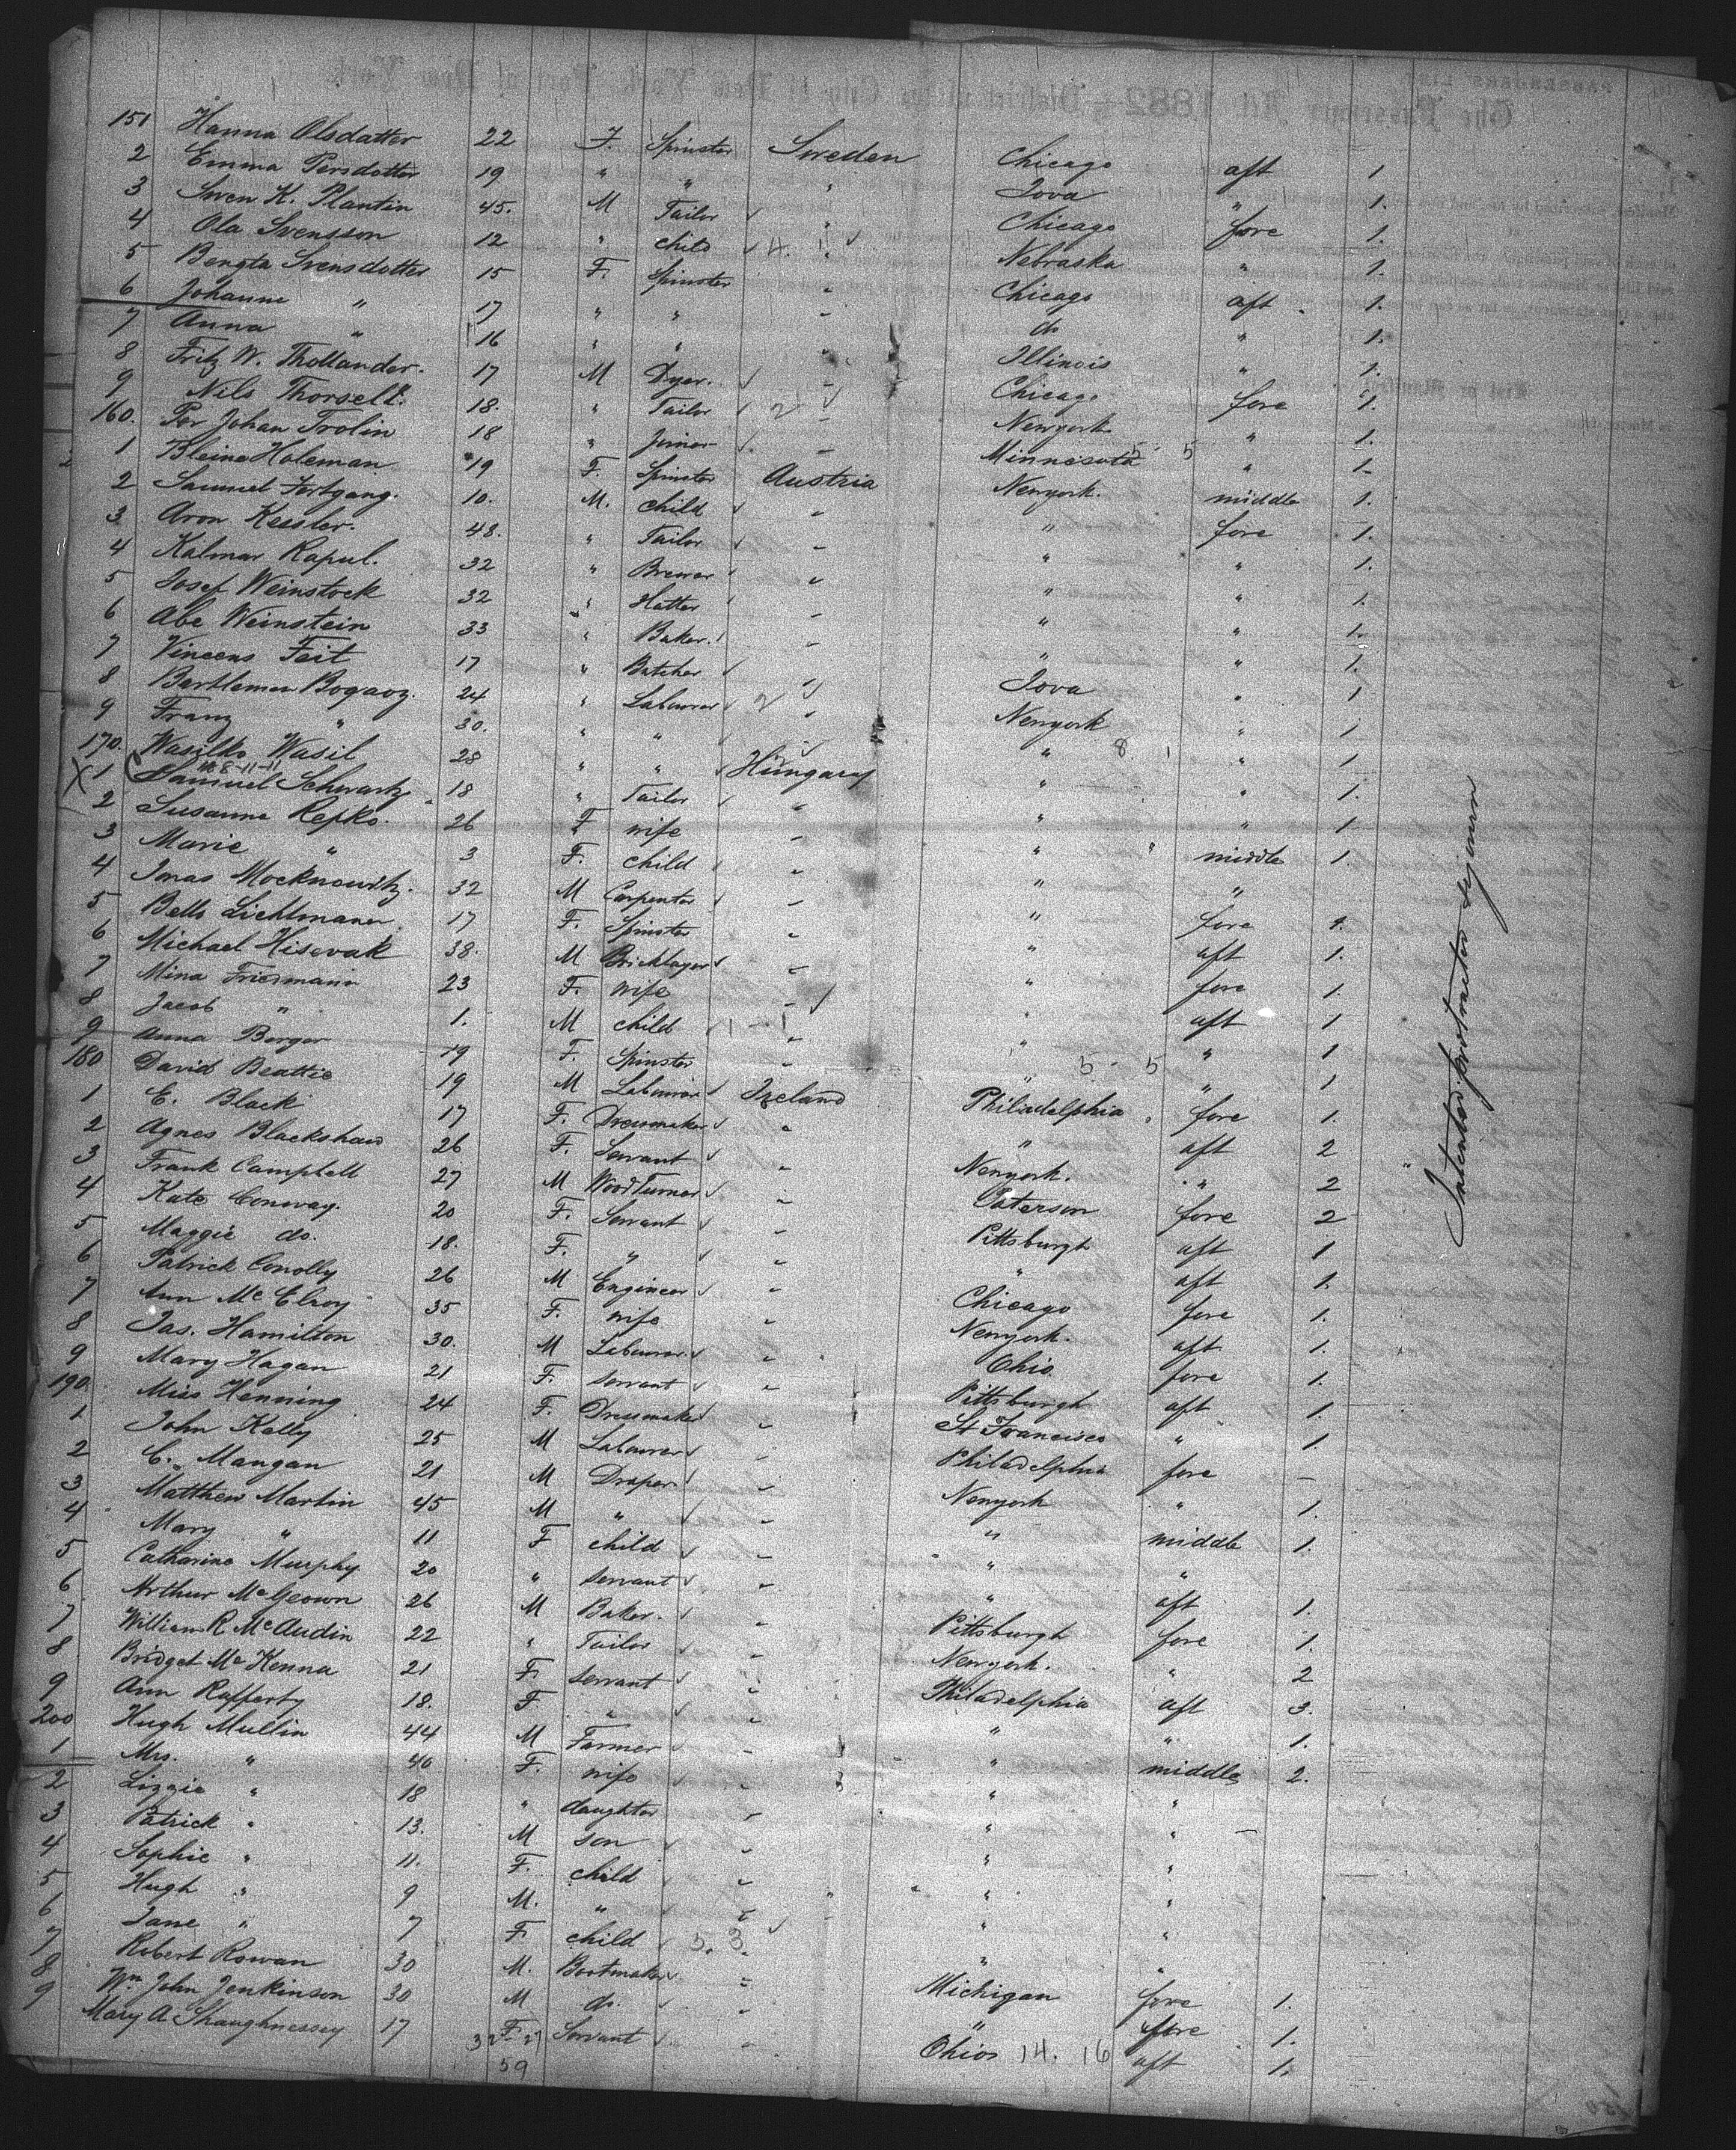 151 Hanna Olsdatter 22 F. Spinster Sweden Chicago aft 1
2 Emma Persdotter 19 " " " Iova " 1.
3 Swen K. Plantin 45. M Tailor Chicago fore 1.
4 Ola Svensson 12 " child " Nebraska " 1.
5 Bengta Svensdotter 15 F. Spinster " Chicago aft 1.
6 Johanne " 17 " " " do " 1.
7 Anna " 16 " " " Illinois " 1.
8 Fritz W. Thollander. 17 M Dyer. " Chicago fore 1.
9 Nils Thorsell. 18. " Tailor " Newyork " 1.
160. Per Johan Trolin 18 " Joiner " Minnesota " 1.
1 Bleine Holeman 19 F. Spinster Austria Newyork. middle 1.
2 Samuel Fertgang. 10. M. child " " fore 1.
3 Aron Kessler. 48. " Tailor " " " 1.
4 Kalman Rapul. 32 " Brewer " " " 1.
5 Josef Weinstock 32 " Hatter " " " 1.
6 Abe Weinstein 33 " Baker. " " " 1.
7 Vincens Feit 17 " Butcher " Iova " 1
8 Bartlemen Bogacz. 24 " Labourer " Newyork " 1
9 Franz " 30. " " " " " 1
170. Wasilko Wasil 28 " " Hungary " " 1.
X 1 Samuel Schwartz 18 " Tailor " " " 1
2 Susanne Repko. 26 F wife " " middle 1.
3 Marie " 3 F. child " " "
4 Jonas Mocknowitz. 32 M Carpenter " " fore 1.
5 Bells Lichtmann 17 F. Spinster " " aft 1.
6 Michael Hisevak 38. M Bricklayer " " fore 1.
7 Mina Friedmann 23 F. wife " " aft 1
8 Jacob " 1. M child " " " 1
9 Anna Berger 19 F. Spinster " " " 1
180 David Beattie 19 M Labourer Ireland Philadelphia fore 1.
1 E. Black 17 F. Dressmaker " " aft 2
2 Agnes Blackshaw 26 F. Servant " Newyork. " 2
3 Frank Campbell 27 M Wood Turner " Paterson fore 2
4 Kate Conway. 20 F. Servant " Pittsburgh aft 1
5 Maggie do. 18. F. " " " aft 1.
6 Patrick Conolly 26 M Engineer " Chicago fore 1.
7 Ann McElroy 35 F. wife " Newyork. aft 1.
8 Jas. Hamilton 30. M Labourer " Ohio fore 1.
9 Mary Hagan 21 F. servant " Pittsburgh aft 1.
190. Miss Henning 24 F. Dressmaker " St Francisco " 1
1 John Kelly 25 M Labourer " Philadelphia fore -
2 C. Mangan 21 M Draper " Newyork " 1.
3 Matthew Martin 45 M " " " middle 1.
4 Mary " 11 F child " " "
5 Catharine Murphy 20 " servant " " aft 1.
6 Arthur McGeown 26 M Baker. " Pittsburgh fore 1
7 William R McAudin 22 " Tailor " Newyork. " 2
8 Bridget McKenna 21 F. servant " Philadelphia aft 3.
9 Ann Rafferty 18. F. " " " " 1.
200 Hugh Mullin 44 M Farmer " " middle 2.
1 Mrs. " 40 F. wife " " "
2 Lizzie " 18 " daughter " " "
3 Patrick " 13. M son " " "
4 Sophie " 11. F. child " " "
5 Hugh " 9 M. " " " "
6 Jane " 7 F. child " " "
7 Robert Rowan 30 M. Bootmaker " Michigan fore 1.
8 Wm John Jenkinson 30 M do. " " fore 1.
9 Mary A Shaughnessey 17 F. Servant " Ohio 14. 16 aft 1.
32 27
59
Intented protracted sejourn